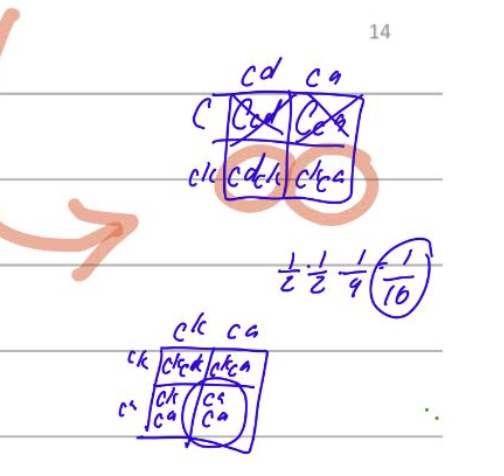 14
cd ca
C Ccd Cca
ck cdck ckca
1/2 · 1/2 · 1/4 = 1/16
ck ca
ck ckck ckca
ca ck ca
ca ca